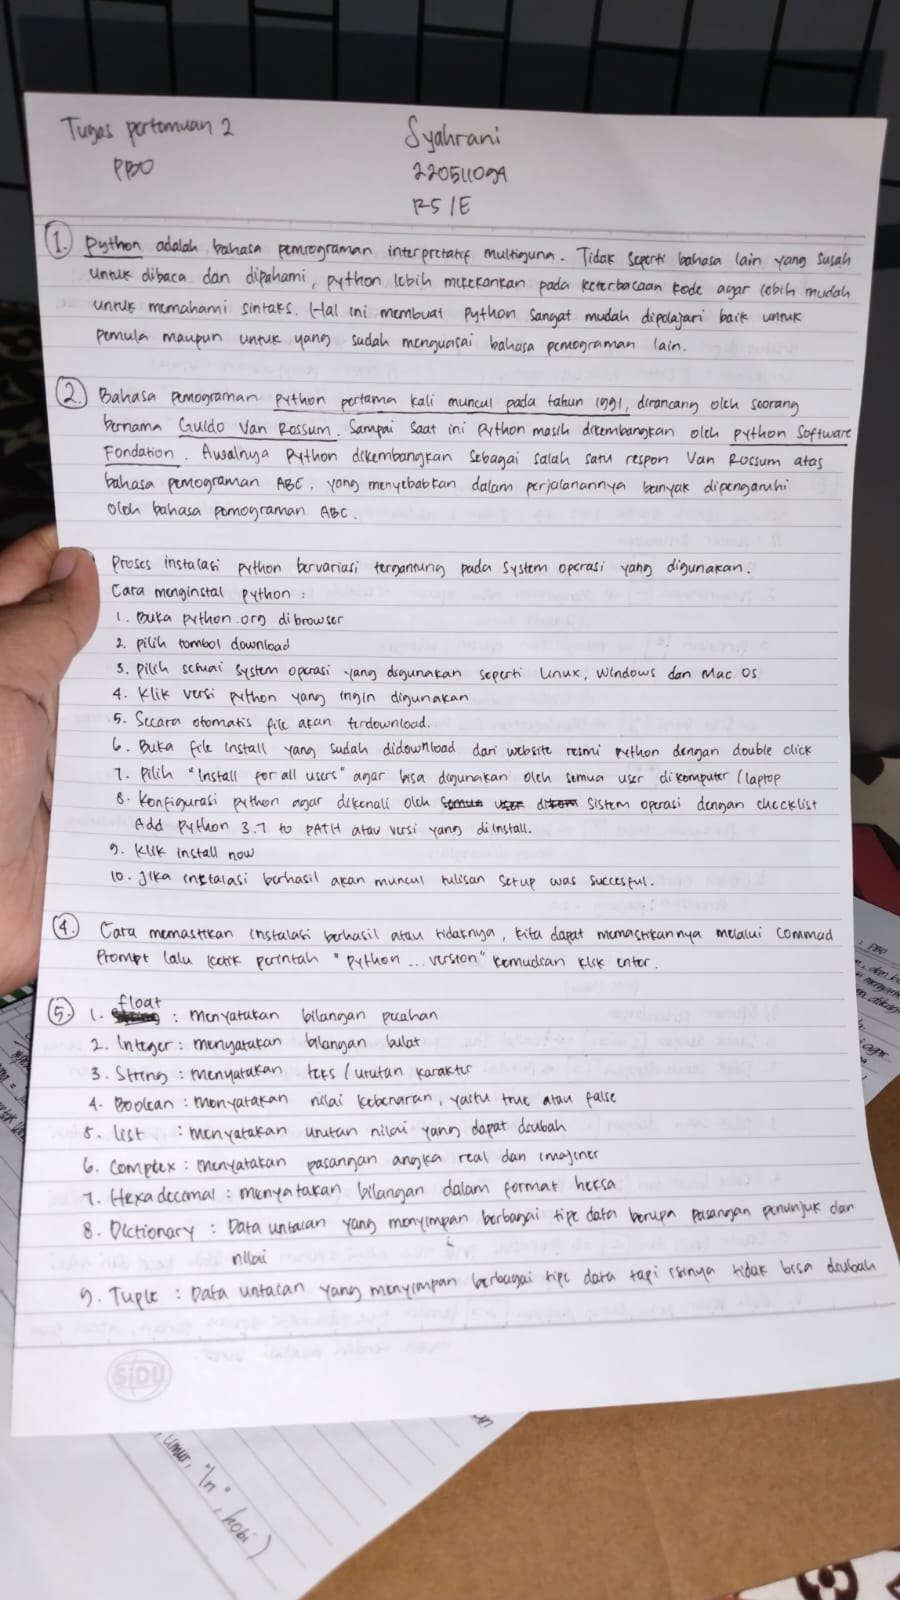 Tugas pertemuan 2
PBO
Syahrani
220511094
R5/E
1. Python adalah bahasa pemrograman interpretatif multiguna. Tidak seperti bahasa lain yang susah
untuk dibaca dan dipahami, python lebih menekankan pada keterbacaan kode agar lebih mudah
untuk memahami sintaks. Hal ini membuat Python sangat mudah dipelajari baik untuk
pemula maupun untuk yang sudah menguasai bahasa pemograman lain.
2. Bahasa pemograman python pertama kali muncul pada tahun 1991, dirancang oleh seorang
bernama Guido Van Rossum. Sampai saat ini Python masih dikembangkan oleh python Software
Fondation. Awalnya Python dikembangkan sebagai salah satu respon Van Rossum atas
bahasa pemograman ABC, yang menyebabkan dalam perjalanannya banyak dipengaruhi
oleh bahasa pemograman ABC.
Proses instalasi python bervariasi tergantung pada system operasi yang digunakan.
Cara menginstal python :
1. Buka python.org dibrowser
2. pilih tombol download
3. pilih sesuai system operasi yang digunakan seperti Linux, Windows dan Mac OS
4. Klik versi python yang ingin digunakan
5. Secara otomatis file akan terdownload.
6. Buka file install yang sudah didownload dari website resmi python dengan double click
7. pilih "Install for all users" agar bisa digunakan oleh semua user dikomputer/laptop
8. Konfigurasi python agar dikenali oleh sistem operasi dengan checklist
Add python 3.7 to PATH atau versi yang diinstall.
9. Klik install now
10. Jika instalasi berhasil akan muncul tulisan Setup was succesful.
4. Cara memastikan instalasi berhasil atau tidaknya, kita dapat memastikannya melalui Commad
Prompt lalu ketik perintah "python ... version" kemudian klik enter.
5. 1. float : menyatakan bilangan pecahan
2. Integer : menyatakan bilangan bulat
3. String : menyatakan teks / urutan karakter
4. Boolean : menyatakan nilai kebenaran, yaitu true atau false
5. list : menyatakan urutan nilai yang dapat diubah
6. Complex : menyatakan pasangan angka real dan imajiner
7. Hexadecimal : menyatakan bilangan dalam format heksa
8. Dictionary : Data untaian yang menyimpan berbagai tipe data berupa pasangan penunjuk dan
nilai
9. Tuple : Data untaian yang menyimpan berbagai tipe data tapi isinya tidak bisa diubah
SiDU
umur, "\n", hobi)
PBO